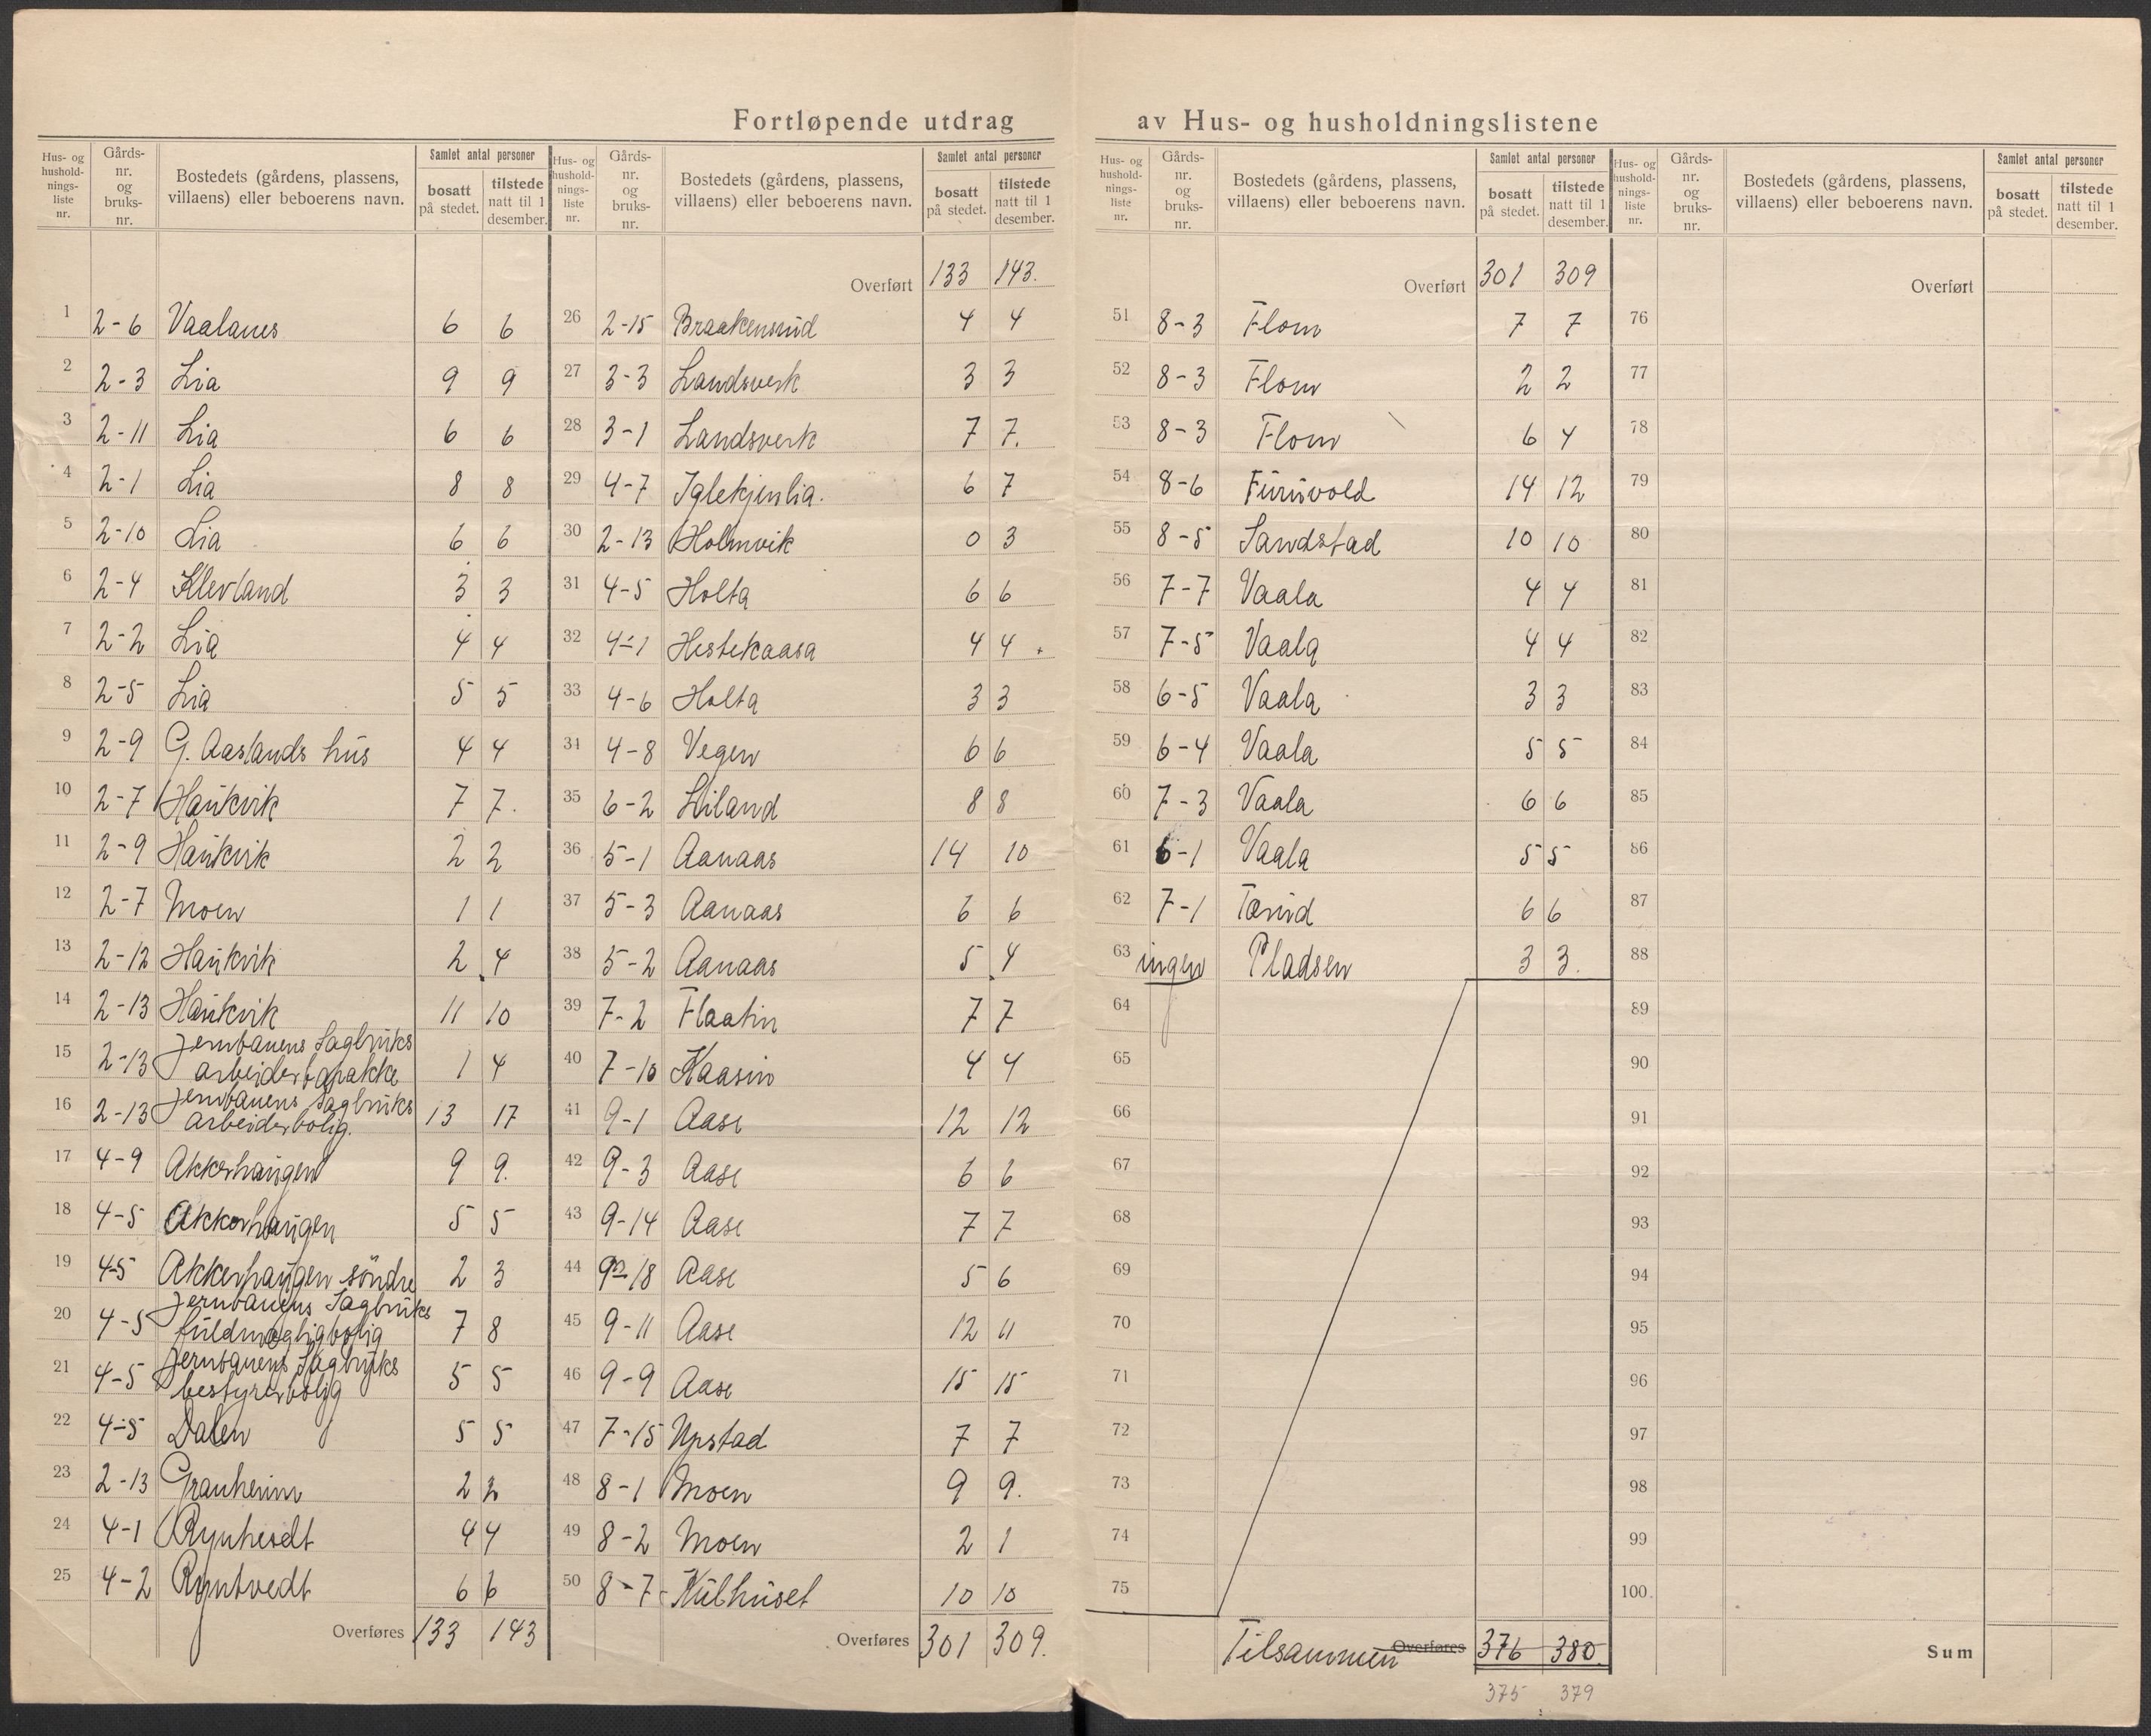 Fortløpende utdrag av Hus- og husholdningslistene
Hus- og hushold-nings-liste nr. | Gårds-nr. og bruks-nr. | Bostedets (gårdens, plassens, villaens) eller beboerens navn. | Samlet antal personer | bosatt på stedet. | tilstede natt til 1 desember.
1 2-6 Vaalanes 6 6
2 2-3 Lia 9 9
3 2-11 Lia 6 6
4 2-1 Lia 8 8
5 2-10 Lia 6 6
6 2-4 Klevland 3 3
7 2-2 Lia 4 4
8 2-5 Lia 5 5
9 2-9 G. Aaslands hus 4 4
10 2-7 Haukvik 7 7.
11 2-9 Haukvik 2 2
12 2-7 Moen 1 1
13 2-12 Haukvik 2 4
14 2-13 Haukvik 11 10
15 2-13 Jernbanens Sagbruks
arbeiderbarakke 1 4
16 2-13 Jernbanens Sagbruks
arbeiderbolig. 13 17
17 4-9 Akkerhaugen 9 9.
18 4-5 Akkerhaugen 5 5
19 4-5 Akkerhaugen söndre 2 3
20 4-5 Jernbanens Sagbruks
fuldmægtigbolig 7 8
21 4-5 Jernbanens Sagbruks
bestyrerbolig 5 5
22 4-5 Dalen 5 5
23 2-13 Granheim 2 2
24 4-1 4 4
25 4-2 Ryntvedt 6 6
Overføres 133 143
Hus- og hushold-nings-liste nr. | Gårds-nr. og bruks-nr. | Bostedets (gårdens, plassens, villaens) eller beboerens navn. | Samlet antal personer | bosatt på stedet. | tilstede natt til 1 desember.
Overført 133 143.
26 2-15 Braakensrud 4 4
27 3-3 Landsverk 3 3
28 3-1 Landsverk 7 7.
29 4-7 Iglekjenlia. 6 7
30 2-13 Holmvik 0 3
31 4-5 Holta 6 6
32 4-1 Hestekaasa 4 4
33 4-6 Holta 3 3
34 4-8 Vegen 6 6
35 6-2 Liland 8 8
36 5-1 Aanaas 14 10
37 5-3 Aanaas 6 6
38 5-2 Aanaas 5 4
39 7-2 Flaatin 7 7
40 7-10 Kaasin 4 4
41 9-1 Aase 12 12
42 9-3 Aase 6 6
43 9-14 Aase 7 7
44 9-18 Aase 5 6
45 9-11 Aase 12 11
46 9-9 Aase 15 15
47 7-15 Upstad 7 7
48 8-1 Moen 9 9.
49 8-2 Moen 2 1
50 8-7 Kulhuset 10 10
Overføres 301 309.
Hus- og hushold-nings-liste nr. | Gårds-nr. og bruks-nr. | Bostedets (gårdens, plassens, villaens) eller beboerens navn. | Samlet antal personer | bosatt på stedet. | tilstede natt til 1 desember.
Overført 301 309
51 8-3 Flom 7 7
52 8-3 Flom 2 2
53 8-3 Flom 6 4
54 8-6 Furuvold 14 12
55 8-5 Sandstad 10 10
56 7-7 Vaala 4 4
57 7-5 Vaala 4 4
58 6-5 Vaala 3 3
59 6-4 Vaala 5 5
60 7-3 Vaala 6 6
61 6-1 Vaala 5 5
62 7-1 6 6
63 ingen Pladsen 3 3.
64
65
66
67
68
69
70
71
72
73
74
75
Tilsammen Overføres 376 380.
375 379
Hus- og hushold-nings-liste nr. | Gårds-nr. og bruks-nr. | Bostedets (gårdens, plassens, villaens) eller beboerens navn. | Samlet antal personer | bosatt på stedet. | tilstede natt til 1 desember.
Overført
76
77
78
79
80
81
82
83
84
85
86
87
88
89
90
91
92
93
94
95
96
97
98
99
100
Sum